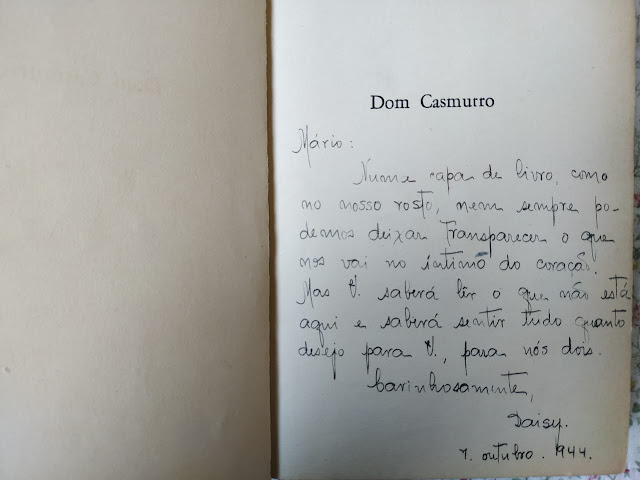 Dom Casmurro
Mário:
Numa capa de livro, como
no nosso rosto, nem sempre po-
demos deixar transparecer o que
nos vai no íntimo do coração.
Mas V. saberá lêr o que não está
aqui e saberá sentir tudo quanto
desejo para V., para nós dois.
Carinhosamente,
Daisy.
7. outubro. 1944.